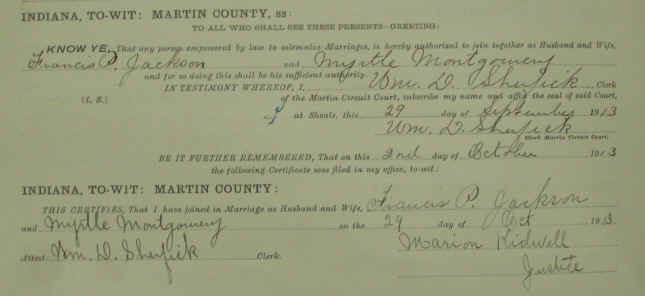 INDIANA, TO-WIT: MARTIN COUNTY, ss:
TO ALL WHO SHALL SEE THESE PRESENTS—GREETING:
KNOW YE, That any person empowered by law to solemnize Marriages, is hereby authorized to join together as Husband and Wife,
Francis P. Jackson and Myrtle Montgomery
and for so doing this shall be his sufficient authority.
IN TESTIMONY WHEREOF, I, Wm. D. Shufick Clerk
(L. S.) of the Martin Circuit Court, subscribe my name and affix the seal of said Court,
at Shoals, this 29 day of September 1913
Wm. D. Shufick
Clerk Martin Circuit Court.
BE IT FURTHER REMEMBERED, That on this 2nd day of October 1913
the following Certificate was filed in my office, to-wit:
INDIANA, TO-WIT: MARTIN COUNTY:
THIS CERTIFIES, That I have joined in Marriage as Husband and Wife, Francis P. Jackson
and Myrtle Montgomery on the 29 day of Oct 1913
Attest Wm. D. Shufick Clerk. Marion Kidwell
Justice